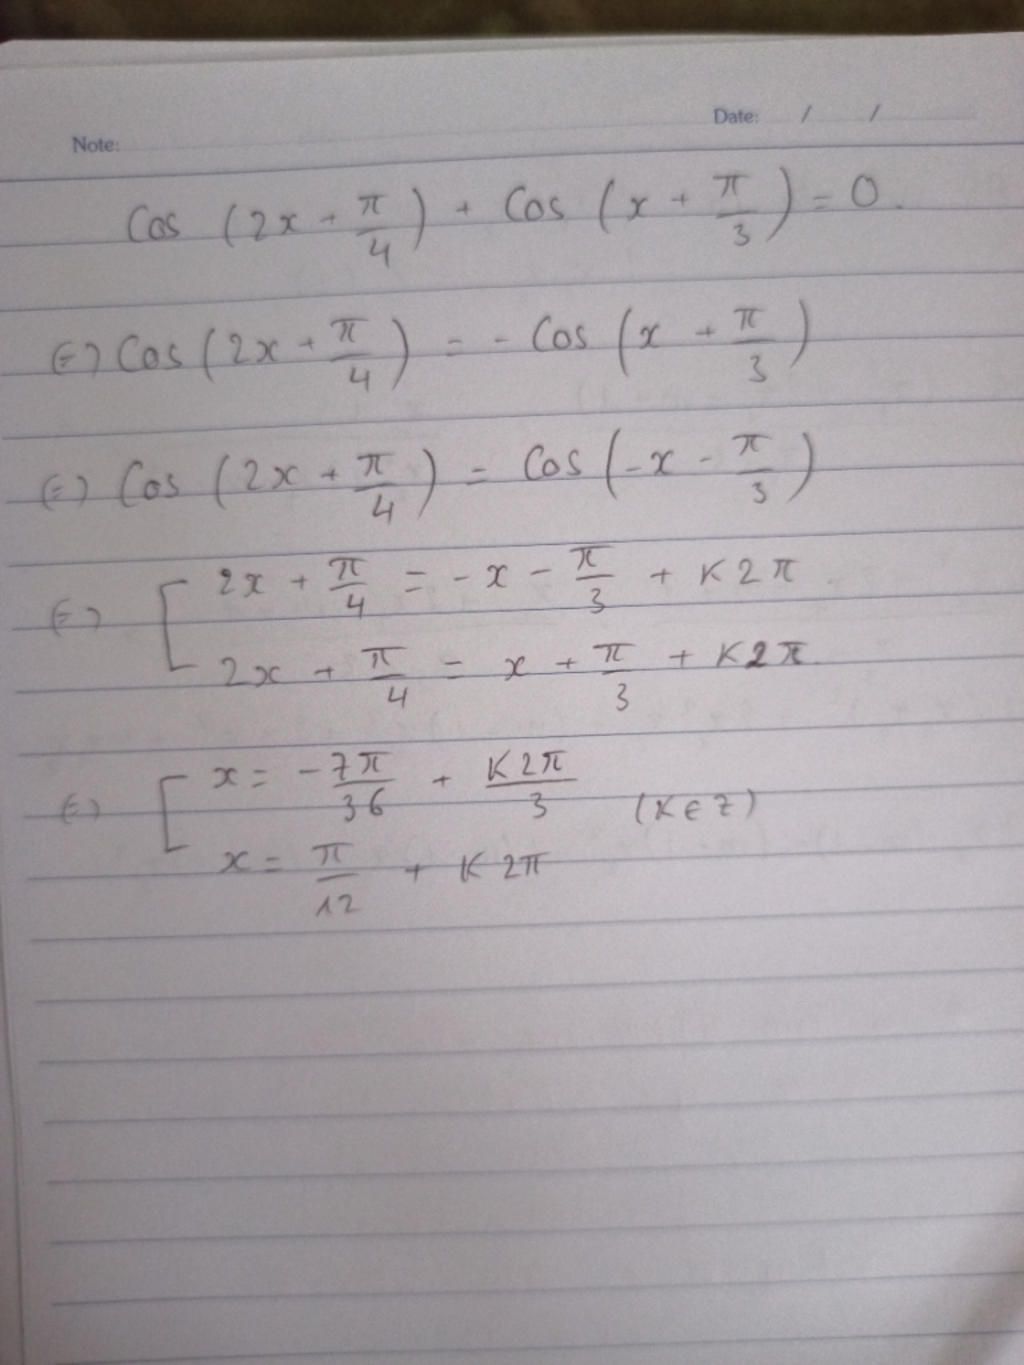 Note:
Date: / /
Cos (2x + π/4) + Cos (x + π/3) = 0.
(=) Cos (2x + π/4) = - Cos (x + π/3)
(=) Cos (2x + π/4) = Cos (-x - π/3)
(=) [ 2x + π/4 = -x - π/3 + K2π
2x + π/4 = x + π/3 + K2π
(=) [ x = -7π/36 + K2π/3 (K∈Z)
x = π/12 + K2π